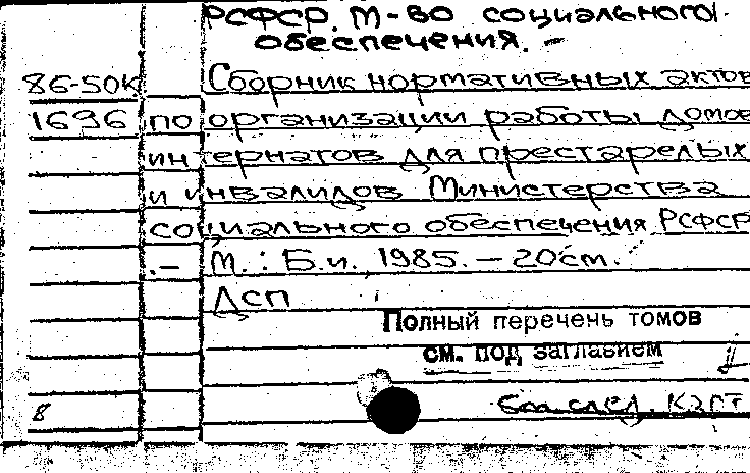 РСФСР. М-во социального
обеспечения. –
86-50к Сборник нормативных актов
1696 по организации работы домов
интернатов для престарелых
и инвалидов Министерства
социального обеспечения РСФСР
.– М.: Б.и., 1985. – 20см.
ДСП
Полный перечень томов
см. под заглавием
см. след. карт
8